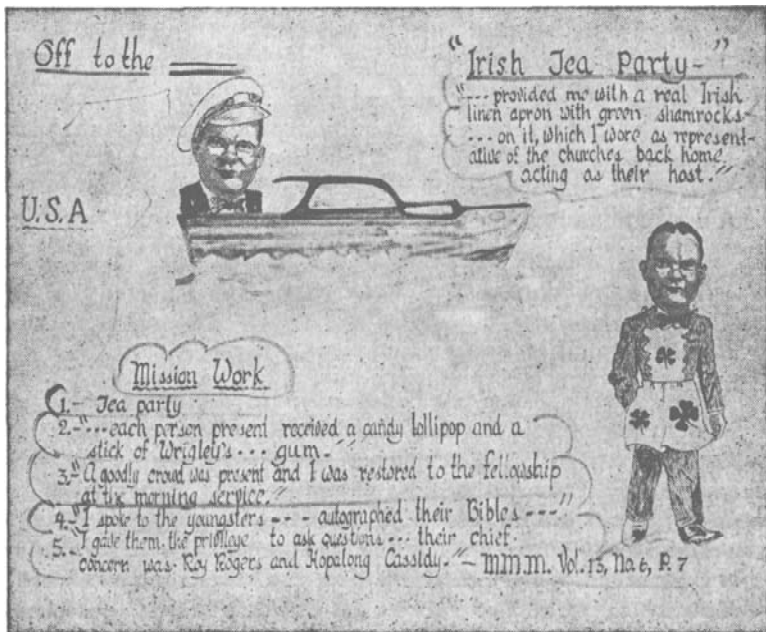 Off to the
U.S.A
"Irish Tea Party-"
"--- provided me with a real Irish
linen apron with green shamrocks-
--- on it, which I wore as represent-
ative of the churches back home
acting as their host."
Mission Work
1.- Tea party
2.-"...each person present received a candy lollipop and a
stick of Wrigley's ... gum-"
3.-"A goodly crowd was present and I was restored to the fellowship
at the morning service."
4.-"I spoke to the youngsters --- autographed their Bibles ---"
5.-"I gave them the privilege to ask questions ... their chief
concern was Roy Rogers and Hopalong Cassidy."- M.M.M. Vol. 13, No. 6, P. 7